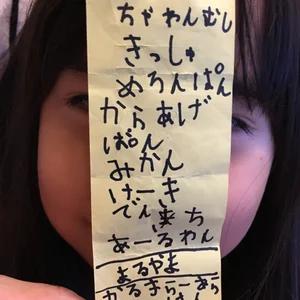 ちゃわんむし
きっしゅ
めろんぱん
からあげ
ぱん
みかん
けーき
でん池ち
あーるわん
まるやま